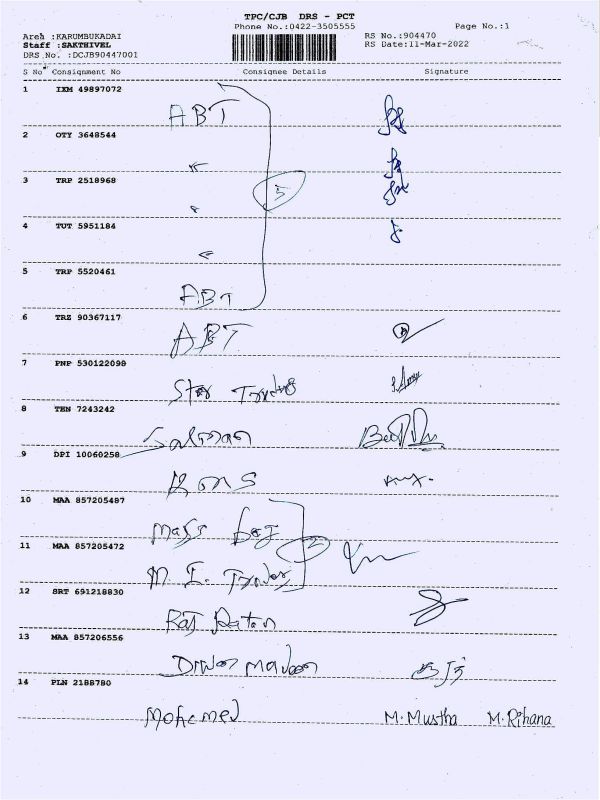 TPC/CJB DRS - PCT
Phone No.:0422-3505555 Page No.:1
Area :KARUMBUKADAI RS No.:904470
Staff :SAKTHIVEL RS Date:11-Mar-2022
DRS No. :DCJB90447001
S No Consignment No Consignee Details Signature
1 IXM 49897072
ABT
2 OTY 3648544
3 TRP 2518968
5
4 TUT 5951184
5 TRP 5520461
ABT
6 TRZ 90367117
ABT
7 PNP 530122098
Star Traders
8 TEN 7243242
Salman
9 DPI 10060258
10 MAA 857205487
Mass
11 MAA 857205472
M. I. Traders
12 SRT 691218830
Raj Ratan
13 MAA 857206556
14 PLN 2188780
Mohamed M. Mustha M. Rihana